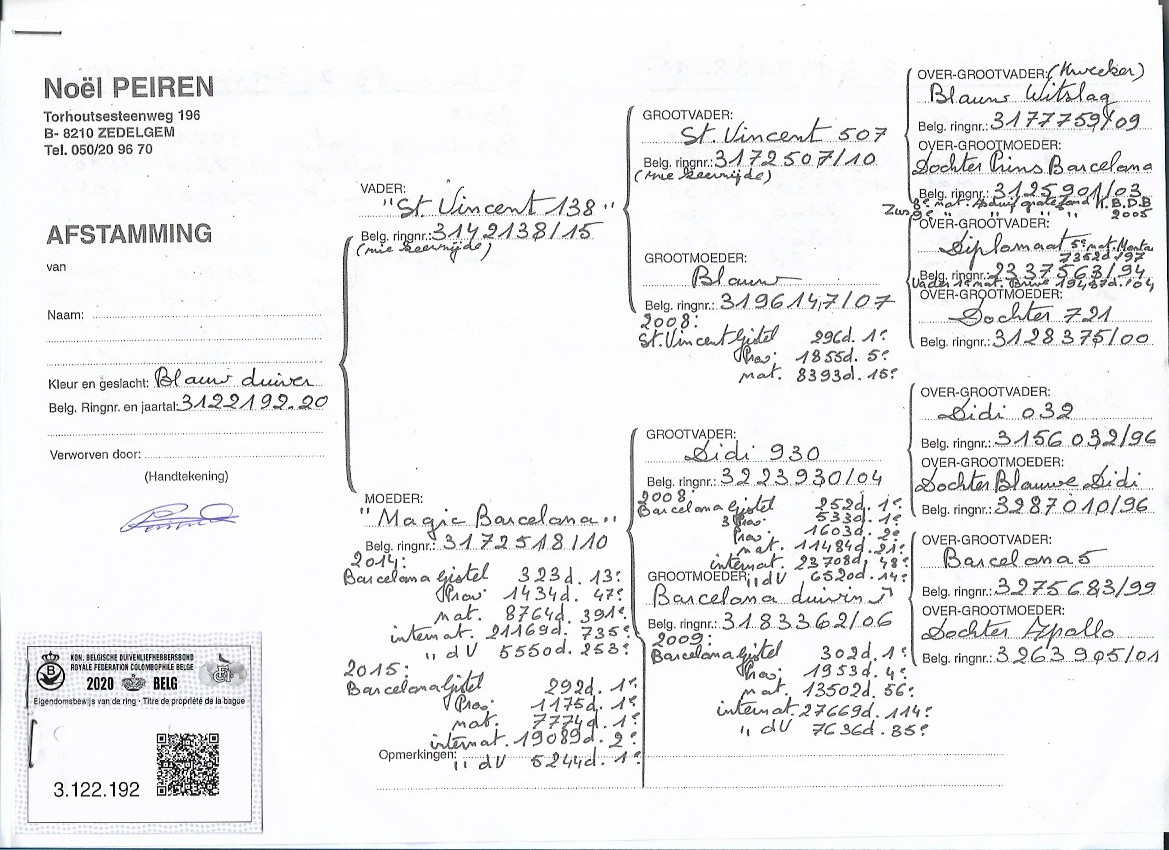 Noël PEIREN
Torhoutsesteenweg 196
B- 8210 ZEDELGEM
Tel. 050/20 96 70
AFSTAMMING
van
Naam:
Kleur en geslacht: Blauw duiver
Belg. Ringnr. en jaartal: 3122192.20
Verworven door:
(Handtekening)
KON. BELGISCHE DUIVENLIEFHEBBERSBOND
ROYALE FEDERATION COLOMBOPHILE BELGE
2020 BELG
Eigendomsbewijs van de ring - Titre de propriété de la bague
3.122.192
VADER:
"St. Vincent 138"
Belg. ringnr.: 3142138/15
MOEDER:
"Magic Barcelona"
Belg. ringnr.: 3172518/10
2014:
Barcelona Gistel 323d. 13e
Prov. 1434d. 47e
nat. 8764d. 391e
internat. 21169d. 735e
" dV 5550d. 253e
2015:
Barcelona Gistel 292d. 1e
Prov. 1175d. 1e
nat. 7774d. 1e
internat. 19089d. 2e
Opmerkingen: " dV 5244d. 1e
GROOTVADER:
St. Vincent 507
Belg. ringnr.: 3172507/10
GROOTMOEDER:
Blauw
Belg. ringnr.: 3196147/07
2008:
St. Vincent Gistel 296d. 1e
Prov. 1855d. 5e
nat. 8393d. 15e
GROOTVADER:
Didi 930
Belg. ringnr.: 3223930/04
2008:
Barcelona Gistel 252d. 1e
3 Prov. 533d. 1e
Prov. 1603d. 2e
nat. 11484d. 21e
internat. 23708d. 48e
" dV 6520d. 14e
GROOTMOEDER:
Barcelona duivin
Belg. ringnr.: 3183362/06
2009:
Barcelona Gistel 302d. 1e
Prov. 1953d. 4e
nat. 13502d. 56e
internat. 27669d. 114e
" dV 7636d. 35e
OVER-GROOTVADER: (Kweeker)
Blauw Witslag
Belg. ringnr.: 3177759/09
OVER-GROOTMOEDER:
Dochter Prins Barcelona
Belg. ringnr.: 3125901/03
K.B.D.B
2005
OVER-GROOTVADER:
Diplomaat 5e nat.
Belg. ringnr.: 2337563/94
Vader 1e nat. Brive 19487d. '04
OVER-GROOTMOEDER:
Dochter 721
Belg. ringnr.: 3128375/00
OVER-GROOTVADER:
Didi 032
Belg. ringnr.: 3156032/96
OVER-GROOTMOEDER:
Dochter Blauwe Didi
Belg. ringnr.: 3287010/96
OVER-GROOTVADER:
Barcelona 5
Belg. ringnr.: 3275683/99
OVER-GROOTMOEDER:
Dochter Apollo
Belg. ringnr.: 3263905/01